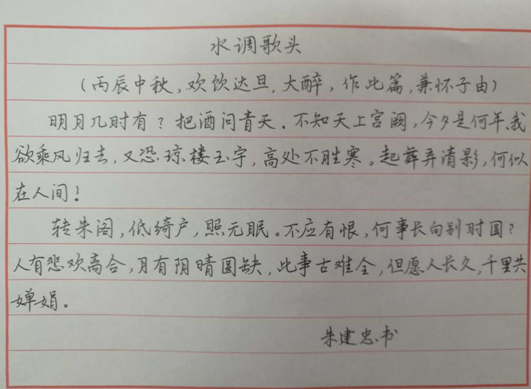 水调歌头
（丙辰中秋，欢饮达旦，大醉，作此篇，兼怀子由）
明月几时有？把酒问青天。不知天上宫阙，今夕是何年。我
欲乘风归去，又恐琼楼玉宇，高处不胜寒。起舞弄清影，何似
在人间！
转朱阁，低绮户，照无眠。不应有恨，何事长向别时圆？
人有悲欢离合，月有阴晴圆缺，此事古难全，但愿人长久，千里共
婵娟。
朱建忠书